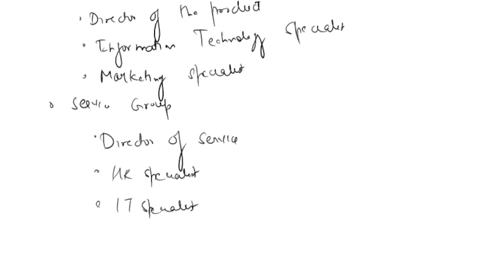 • Director of the product
• Information Technology specialist
• Marketing specialist
• Service Group
• Director of Service
• HR specialist
• IT specialist